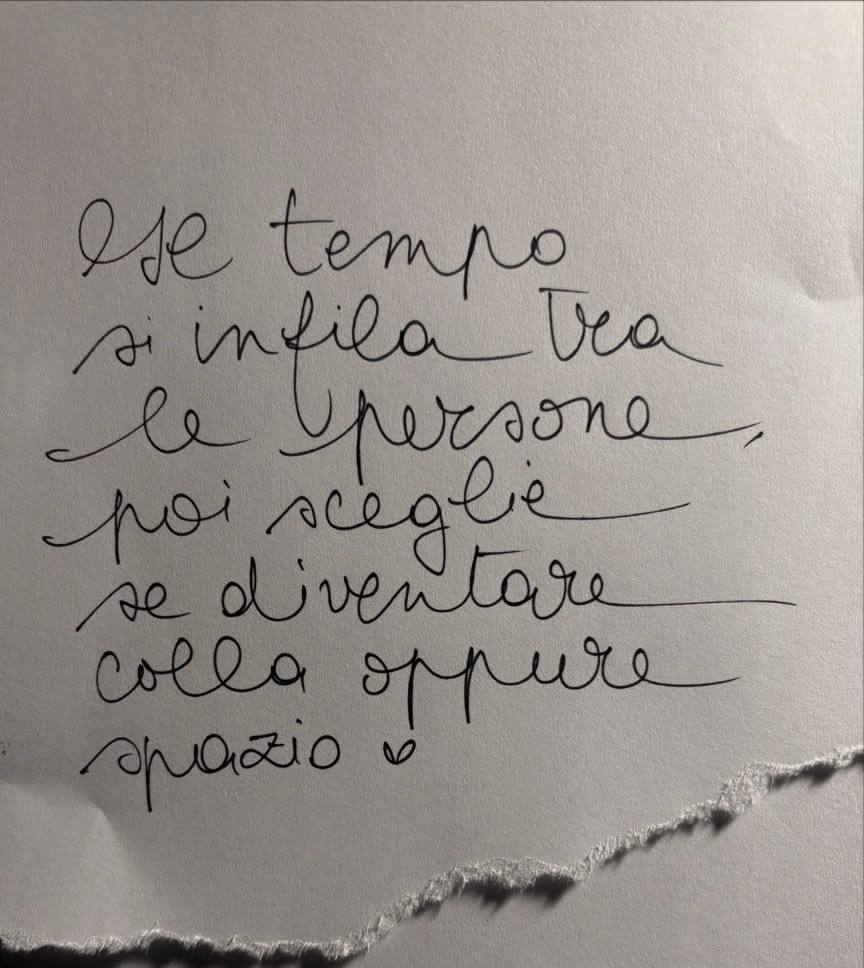 Il tempo
si infila tra
le persone,
poi sceglie
se diventare
colla oppure
spazio